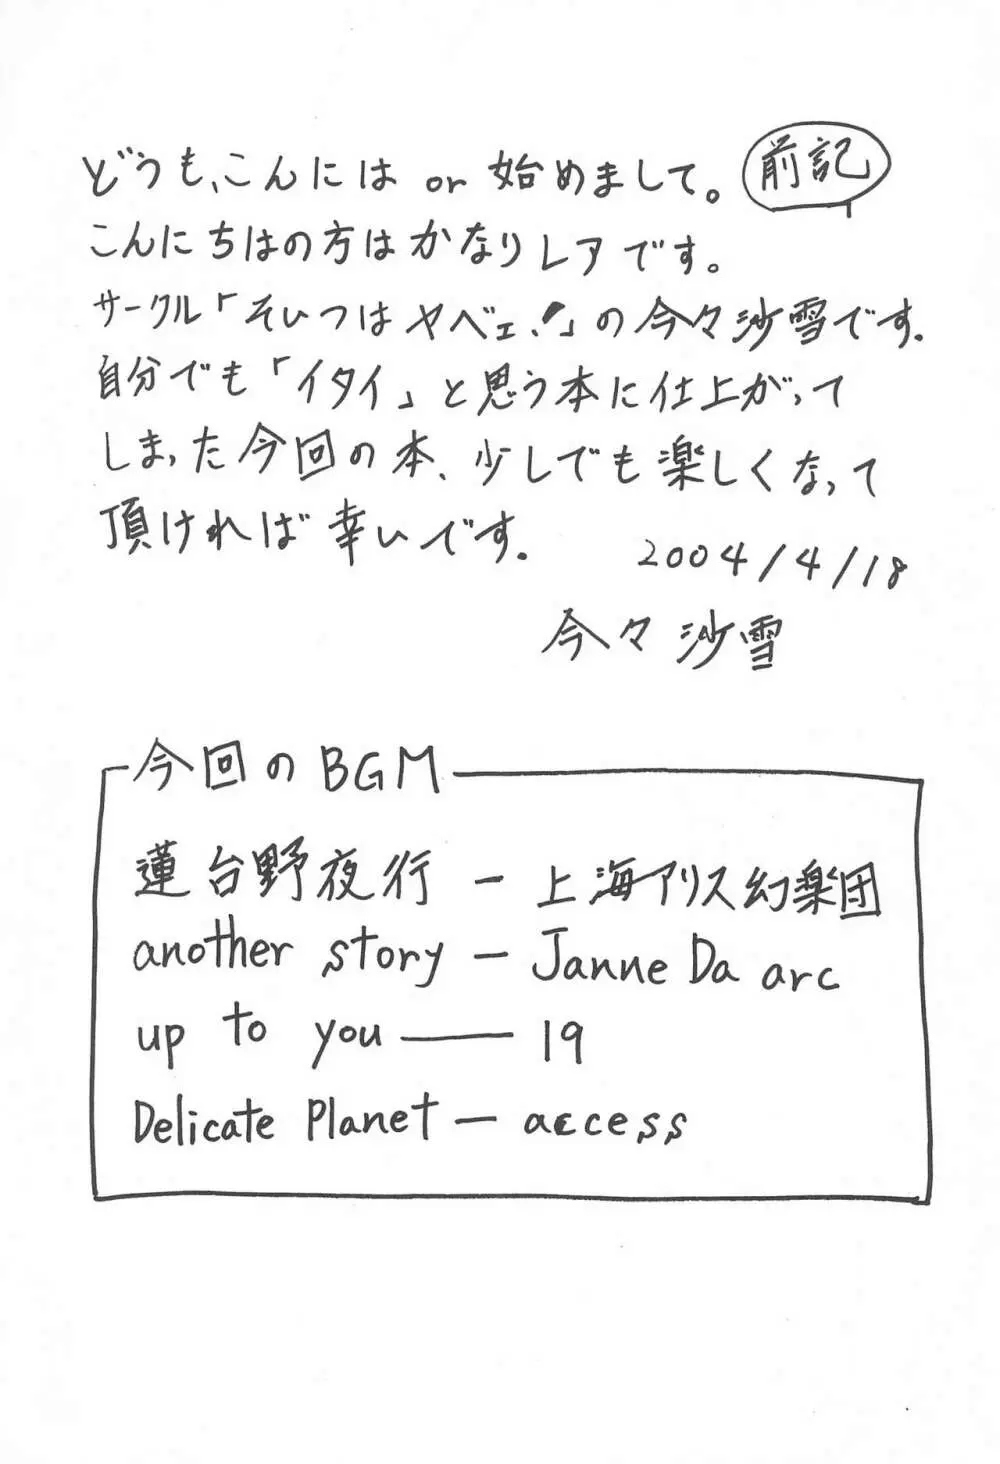 前記
どうも、こんにはは or 始めまして。
こんにちはの方はかなりレアです。
サークル「そいつはヤベェ!」の今々沙雪です。
自分でも「イタイ」と思う本に仕上がって
しまった今回の本、少しでも楽しくなって
頂ければ幸いです。
2004/4/18
今々沙雪
今回のBGM
蓮台野夜行 ー 上海アリス幻楽団
another story ー Janne Da arc
up to you ー 19
Delicate Planet ー access